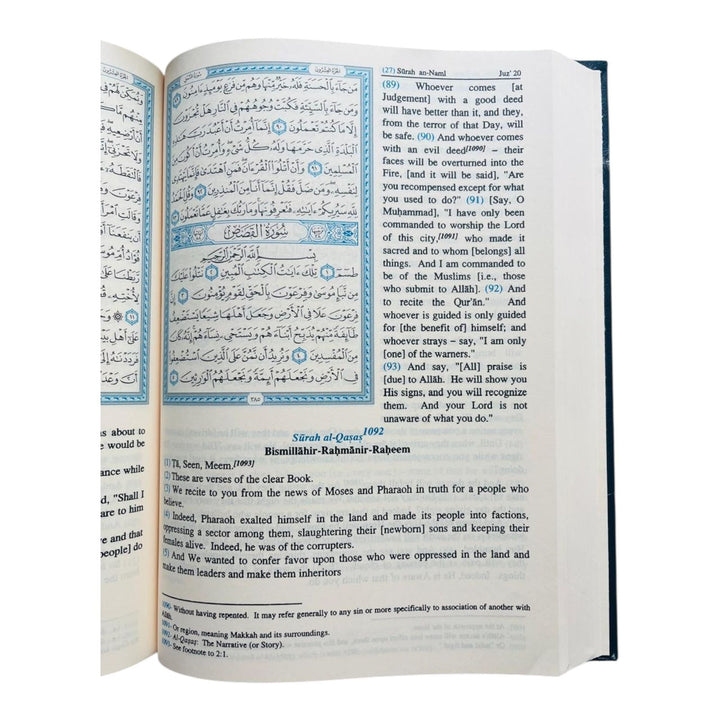 سورة القصص
الجزء العشرون
مَن جَآءَ بِٱلْحَسَنَةِ فَلَهُۥ خَيْرٌ مِّنْهَا وَهُم مِّن فَزَعٍ يَوْمَئِذٍ ءَامِنُونَ ٨٩
وَمَن جَآءَ بِٱلسَّيِّئَةِ فَكُبَّتْ وُجُوهُهُمْ فِى ٱلنَّارِ هَلْ تُجْزَوْنَ
إِلَّا مَا كُنتُمْ تَعْمَلُونَ ٩٠ إِنَّمَآ أُمِرْتُ أَنْ أَعْبُدَ رَبَّ هَٰذِهِ
ٱلْبَلْدَةِ ٱلَّذِى حَرَّمَهَا وَلَهُۥ كُلُّ شَىْءٍ وَأُمِرْتُ أَنْ أَكُونَ مِنَ
ٱلْمُسْلِمِينَ ٩١ وَأَنْ أَتْلُوَا۟ ٱلْقُرْءَانَ فَمَنِ ٱهْتَدَىٰ فَإِنَّمَا يَهْتَدِى
لِنَفْسِهِۦ وَمَن ضَلَّ فَقُلْ إِنَّمَآ أَنَا۠ مِنَ ٱلْمُنذِرِينَ ٩٢ وَقُلِ ٱلْحَمْدُ
لِلَّهِ سَيُرِيكُمْ ءَايَٰتِهِۦ فَتَعْرِفُونَهَا وَمَا رَبُّكَ بِغَٰفِلٍ عَمَّا تَعْمَلُونَ
سُورَةُ القَصَصِ
بِسْمِ ٱللَّهِ ٱلرَّحْمَٰنِ ٱلرَّحِيمِ
طسٓمٓ ١ تِلْكَ ءَايَٰتُ ٱلْكِتَٰبِ ٱلْمُبِينِ ٢ نَتْلُوا۟ عَلَيْكَ
مِن نَّبَإِ مُوسَىٰ وَفِرْعَوْنَ بِٱلْحَقِّ لِقَوْمٍ يُؤْمِنُونَ ٣ إِنَّ
فِرْعَوْنَ عَلَا فِى ٱلْأَرْضِ وَجَعَلَ أَهْلَهَا شِيَعًا يَسْتَضْعِفُ
طَآئِفَةً مِّنْهُمْ يُذَبِّحُ أَبْنَآءَهُمْ وَيَسْتَحْىِۦ نِسَآءَهُمْ إِنَّهُۥ كَانَ
مِنَ ٱلْمُفْسِدِينَ ٤ وَنُرِيدُ أَن نَّمُنَّ عَلَى ٱلَّذِينَ ٱسْتُضْعِفُوا۟
فِى ٱلْأَرْضِ وَنَجْعَلَهُمْ أَئِمَّةً وَنَجْعَلَهُمُ ٱلْوَٰرِثِينَ ٥
٣٨٥
(27) Sūrah an-Naml Juz' 20
(89) Whoever comes [at
Judgement] with a good deed
will have better than it, and they,
from the terror of that Day, will
be safe. (90) And whoever comes
with an evil deed[1090] – their
faces will be overturned into the
Fire, [and it will be said], "Are
you recompensed except for what
you used to do?" (91) [Say, O
Muḥammad], "I have only been
commanded to worship the Lord
of this city,[1091] who made it
sacred and to whom [belongs] all
things. And I am commanded to
be of the Muslims [i.e., those
who submit to Allāh]. (92) And
to recite the Qur'ān." And
whoever is guided is only guided
for [the benefit of] himself; and
whoever strays – say, "I am only
[one] of the warners."
(93) And say, "[All] praise is
[due] to Allāh. He will show you
His signs, and you will recognize
them. And your Lord is not
unaware of what you do."
Sūrah al-Qaṣaṣ1092
Bismillāhir-Raḥmānir-Raḥeem
(1) Ṭā, Seen, Meem.[1093]
(2) These are verses of the clear Book.
(3) We recite to you from the news of Moses and Pharaoh in truth for a people who
believe.
(4) Indeed, Pharaoh exalted himself in the land and made its people into factions,
oppressing a sector among them, slaughtering their [newborn] sons and keeping their
females alive. Indeed, he was of the corrupters.
(5) And We wanted to confer favor upon those who were oppressed in the land and
make them leaders and make them inheritors
1090- Without having repented. It may refer generally to any sin or more specifically to association of another with
Allāh.
1091- Or region, meaning Makkah and its surroundings.
1092- Al-Qaṣaṣ: The Narrative (or Story).
1093- See footnote to 2:1.
as about to
e would be
ance while
d, "Shall I
are to him
ve and that
people] do